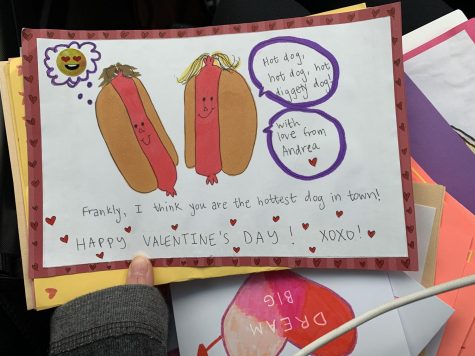 Hot dog,
hot dog, hot
diggety dog!
with
love from
Andrea
Frankly, I think you are the hottest dog in town!
HAPPY VALENTINE'S DAY! XOXO!
DREAM
BIG